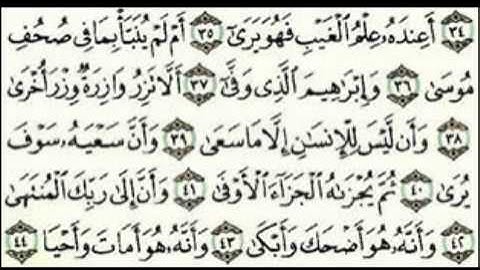 ٣٤ أَعِندَهُۥ عِلْمُ ٱلْغَيْبِ فَهُوَ يَرَىٰٓ ٣٥ أَمْ لَمْ يُنَبَّأْ بِمَا فِى صُحُفِ
مُوسَىٰ ٣٦ وَإِبْرَٰهِيمَ ٱلَّذِى وَفَّىٰٓ ٣٧ أَلَّا تَزِرُ وَازِرَةٌ وِزْرَ أُخْرَىٰ
٣٨ وَأَن لَّيْسَ لِلْإِنسَٰنِ إِلَّا مَا سَعَىٰ ٣٩ وَأَنَّ سَعْيَهُۥ سَوْفَ
يُرَىٰ ٤٠ ثُمَّ يُجْزَىٰهُ ٱلْجَزَآءَ ٱلْأَوْفَىٰ ٤١ وَأَنَّ إِلَىٰ رَبِّكَ ٱلْمُنتَهَىٰ
٤٢ وَأَنَّهُۥ هُوَ أَضْحَكَ وَأَبْكَىٰ ٤٣ وَأَنَّهُۥ هُوَ أَمَاتَ وَأَحْيَا ٤٤